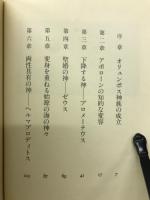 序章 オリュンポス神族の成立 7
第一章 アポローンの知的な変容 17
第三章 下降する神――プロメーテウス 41
第四章 聖婚の神――ゼウス 69
第五章 変身を重ねる始源の海の神々 87
第六章 両性具有の神――ヘルマプロディトス